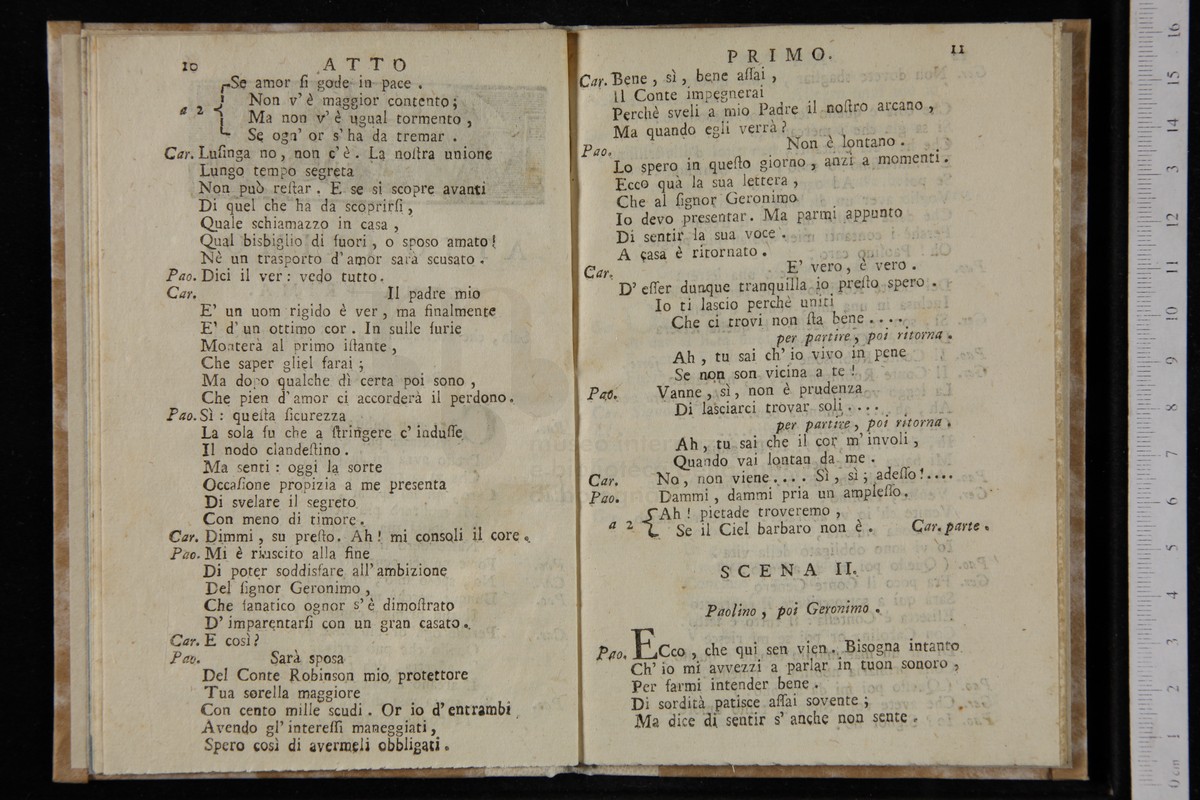 10 ATTO
Se amor ſi gode in pace .
Non v' è maggior contento ;
a 2
Ma non v' è ugual tormento ,
Se ogn' or s' ha da tremar .
Car. Luſinga no , non c' è . La noſtra unione
Lungo tempo segreta
Non può reſtar . E se si scopre avanti
Di quel che ha da scoprirſi ,
Quale schiamazzo in casa ,
Qual bisbiglio di fuori , o sposo amato !
Nè un trasporto d' amor sarà scusato .
Pao. Dici il ver : vedo tutto .
Car. Il padre mio
E' un uom rigido è ver , ma finalmente
E' d' un ottimo cor . In sulle furie
Monterà al primo iſtante ,
Che saper gliel farai ;
Ma dopo qualche dì certa poi sono ,
Che pien d' amor ci accorderà il perdono .
Pao. Sì : queſta ſicurezza
La sola fu che a ſtringere c' induſſe
Il nodo clandeſtino .
Ma senti : oggi la sorte
Occaſione propizia a me presenta
Di svelare il segreto
Con meno di timore .
Car. Dimmi , su preſto . Ah ! mi consoli il core .
Pao. Mi è riuscito alla fine
Di poter soddisfare all' ambizione
Del ſignor Geronimo ,
Che fanatico ognor s' è dimoſtrato
D' imparentarſi con un gran casato .
Car. E così ?
Pao. Sarà sposa
Del Conte Robinson mio protettore
Tua sorella maggiore
Con cento mille scudi . Or io d' entrambi
Avendo gl' intereſſi maneggiati ,
Spero così di avermeli obbligati .
PRIMO. 11
Car. Bene , sì , bene aſſai ,
Il Conte impegnerai
Perchè sveli a mio Padre il noſtro arcano ,
Ma quando egli verrà ?
Pao. Non è lontano .
Lo spero in queſto giorno , anzi a momenti .
Ecco quà la sua lettera ,
Che al ſignor Geronimo
Io devo presentar . Ma parmi appunto
Di sentir la sua voce .
A casa è ritornato .
Car. E' vero , è vero .
D' eſſer dunque tranquilla io preſto spero .
Io ti lascio perchè uniti
Che ci trovi non ſta bene . . . .
per partire , poi ritorna .
Ah , tu sai ch' io vivo in pene
Se non son vicina a te !
Pao. Vanne , sì , non è prudenza
Di lasciarci trovar soli . . . .
per partire , poi ritorna .
Ah , tu sai che il cor m' involi ,
Quando vai lontan da me .
Car. No , non viene . . . . Sì , sì ; adeſſo ! . . . .
Pao. Dammi , dammi pria un ampleſſo .
Ah ! pietade troveremo ,
a 2
Se il Ciel barbaro non è . Car. parte .
SCENA II.
Paolino , poi Geronimo .
Pao. ECco , che qui sen vien . Bisogna intanto
Ch' io mi avvezzi a parlar in tuon sonoro ,
Per farmi intender bene .
Di sordità patisce aſſai sovente ;
Ma dice di sentir s' anche non sente .
0 cm 1 2 3 4 5 6 7 8 9 10 11 12 13 14 15 16